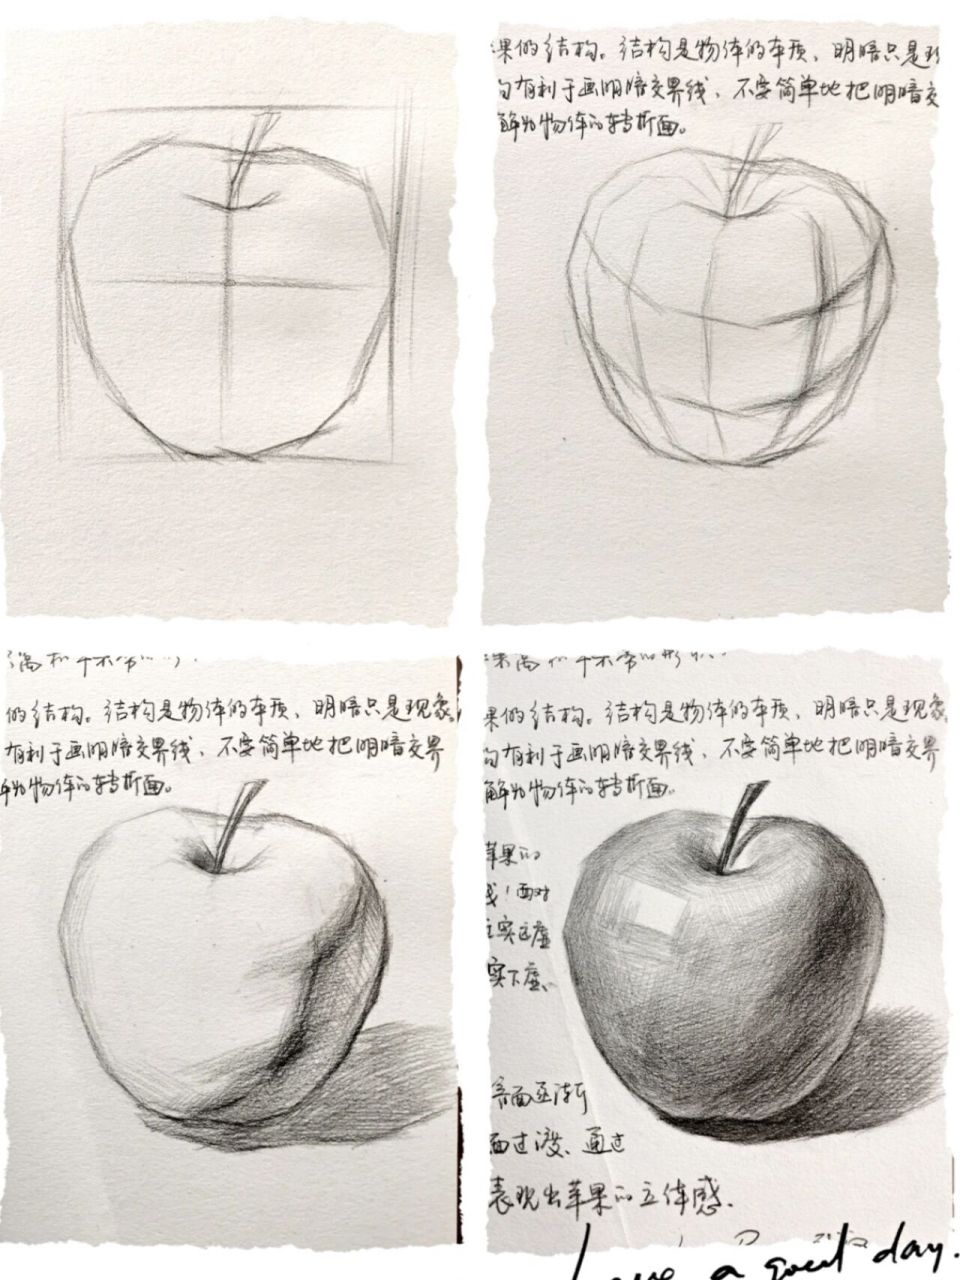 果的结构。结构是物体的本质、明暗只是现
有利于画明暗交界线、不要简单地把明暗交
解为物体的转折面。
的结构。结构是物体的本质、明暗只是现象
有利于画明暗交界线、不要简单地把明暗交界
解为物体的转折面。
果的结构。结构是物体的本质、明暗只是现象
有利于画明暗交界线、不要简单地把明暗交界
解为物体的转折面。
苹果的
面对
实远虚
实下虚、
亮面逐渐
面过渡、通过
表现出苹果的立体感.
a good day.